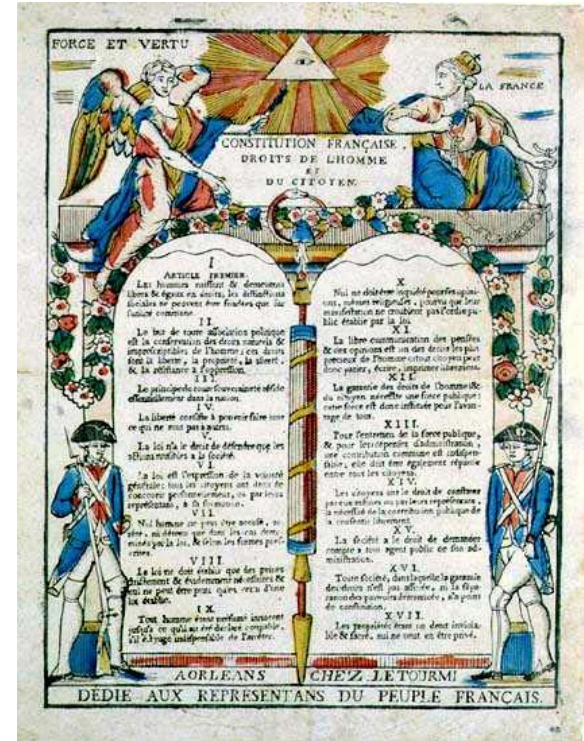 FORCE ET VERTU
LA FRANCE
CONSTITUTION FRANÇAISE,
DROITS DE L'HOMME
ET
DU CITOYEN.
I
ARTICLE PREMIER.
Les hommes naissent & demeurent
libres & égaux en droits, les distinctions
sociales ne peuvent être fondées que sur
l'utilité commune.
II.
Le but de toute association politique
est la conservation des droits naturels &
imprescriptibles de l'homme; ces droits
sont la liberté, la propriété, la sûreté,
& la résistance à l'oppression.
III.
Le principe de toute souveraineté réside
essentiellement dans la nation.
IV.
La liberté consiste à pouvoir faire tout
ce qui ne nuit pas à autrui.
V.
La loi n'a le droit de défendre que les
actions nuisibles à la société.
VI.
La loi est l'expression de la volonté
générale; tous les citoyens ont droit de
concourir personnellement, ou par leurs
représentans, à sa formation.
VII.
Nul homme ne peut être accusé,
arrêté, ni détenu que dans les cas
déterminés par la loi, & selon les formes
prescrites.
VIII.
La loi ne doit établir que des peines
strictement & évidemment nécessaires &
nul ne peut être puni qu'en vertu d'une
loi établie.
IX.
Tout homme étant présumé innocent
jusqu'à ce qu'il ait été déclaré coupable,
s'il est jugé indispensable de l'arrêter.
X.
Nul ne doit être inquiété pour ses opini-
ons, mêmes religieuses, pourvu que leur
manifestation ne troublent pas l'ordre pu-
blic établie par la loi.
XI.
La libre communication des pensées
& des opinions est un des droits les plus
précieux de l'homme; tout citoyen peut
donc parler, écrire, imprimer librement.
XII.
La garantie des droits de l'homme &
du citoyen nécessite une force publique:
cette force est donc instituée pour l'avan-
tage de tous.
XIII.
Pour l'entretien de la force publique,
& pour les dépenses d'administration,
une contribution commune est indispen-
sable; elle doit être également répartie
entre tous les citoyens.
XIV.
Les citoyens ont le droit de constater
par eux mêmes ou par leurs représentans,
la nécessité de la contribution publique de
la consentir librement.
XV.
La société a le droit de demander
compte à tout agent public de son ad-
ministration.
XVI.
Toute société, dans laquelle la garantie
des droits n'est pas assurée, ni la sépa-
ration des pouvoirs déterminée, n'a point
de constitution.
XVII.
Les propriétés étant un droit inviola-
ble & sacré, nul ne peut en être privé.
A ORLEANS CHEZ LETOURMI
DÉDIÉ AUX REPRÉSENTANS DU PEUPLE FRANÇAIS.